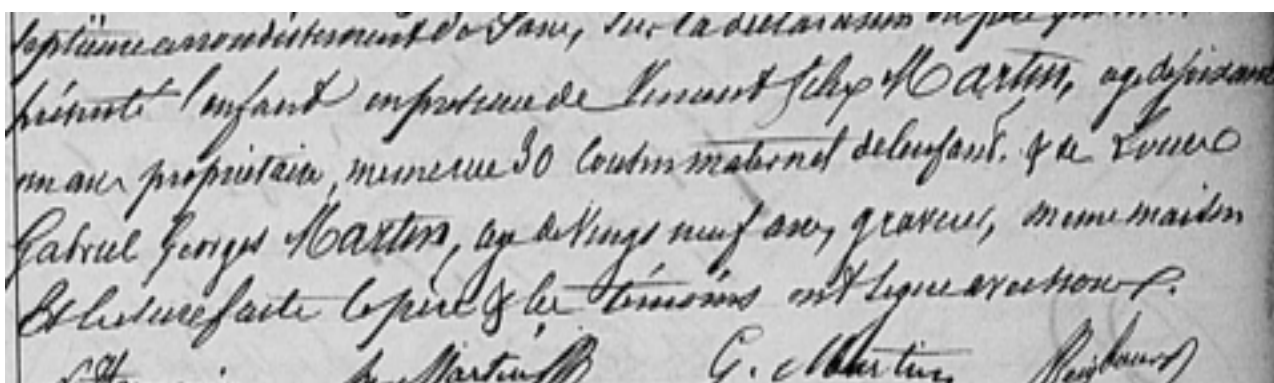 septième arrondissement de Paris, sur la déclaration du père qui
présenté l'enfant en présence de Vincent Félix Martin, agé de soixante
ans propriétaire, même rue 30 Cousin maternel de l'enfant. & de Louis
Gabriel Georges Martin, agé de Vingt neuf ans, graveur, même maison
Et lecture faite le père & les témoins ont signé avec nous.
Martin G. Martin